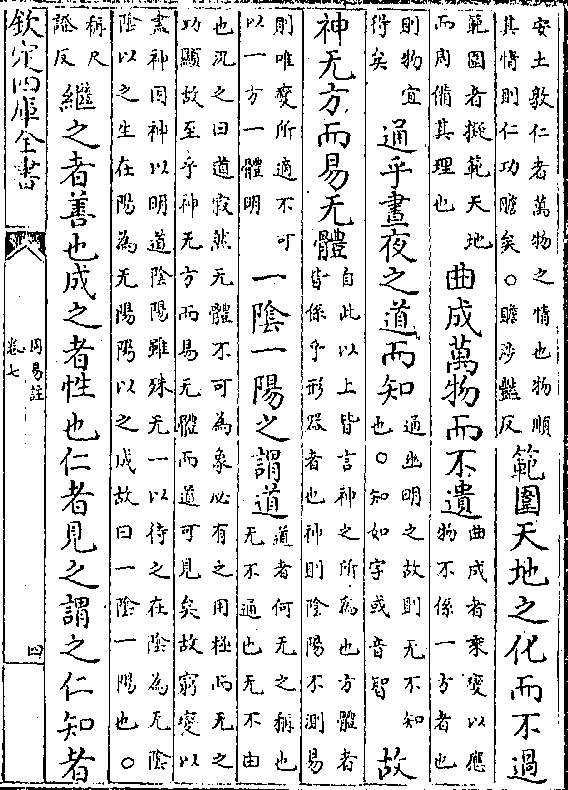 安土敦仁者萬物之情也物順
其情則仁功贍矣○贍涉豔反
範圍天地之化而不過
範圍者擬範天地
而周備其理也
曲成萬物而不遺
曲成者乘變以應
物不係一方者也
則物宜
得矣
通乎晝夜之道而知
通幽明之故則无不知
也○知如字或音智
故
神无方而易无體
自此以上皆言神之所為也方體者
皆係乎形器者也神則陰陽不測易
則唯變所適不可
以一方一體明
一陰一陽之謂道
道者何无之稱也
无不通也无不由
也況之曰道寂然无體不可為象必有之用極而无之
功顯故至乎神无方而易无體而道可見矣故窮變以
盡神因神以明道陰陽雖殊无一以待之在陰為无陰
陰以之生在陽為无陽陽以之成故曰一陰一陽也○
稱尺
證反
繼之者善也成之者性也仁者見之謂之仁知者
欽定四庫全書
周易註
卷七
四